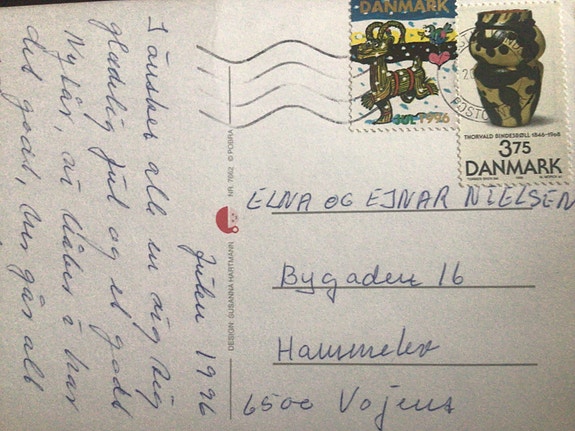 Julen 1996
I ønsker alle en rig rig
glædelig Jul og et godt
Nytår, vi håber i har
det godt, her går alt
NR. 7662 © POBRA
DESIGN SUSANNA HARTMANN
DANMARK
JUL 1996
THORVALD BINDESBØLL 1846-1908
3 75
DANMARK
ELNA OG EJNAR NIELSEN
Bygaden 16
Hammelev
6500 Vojens